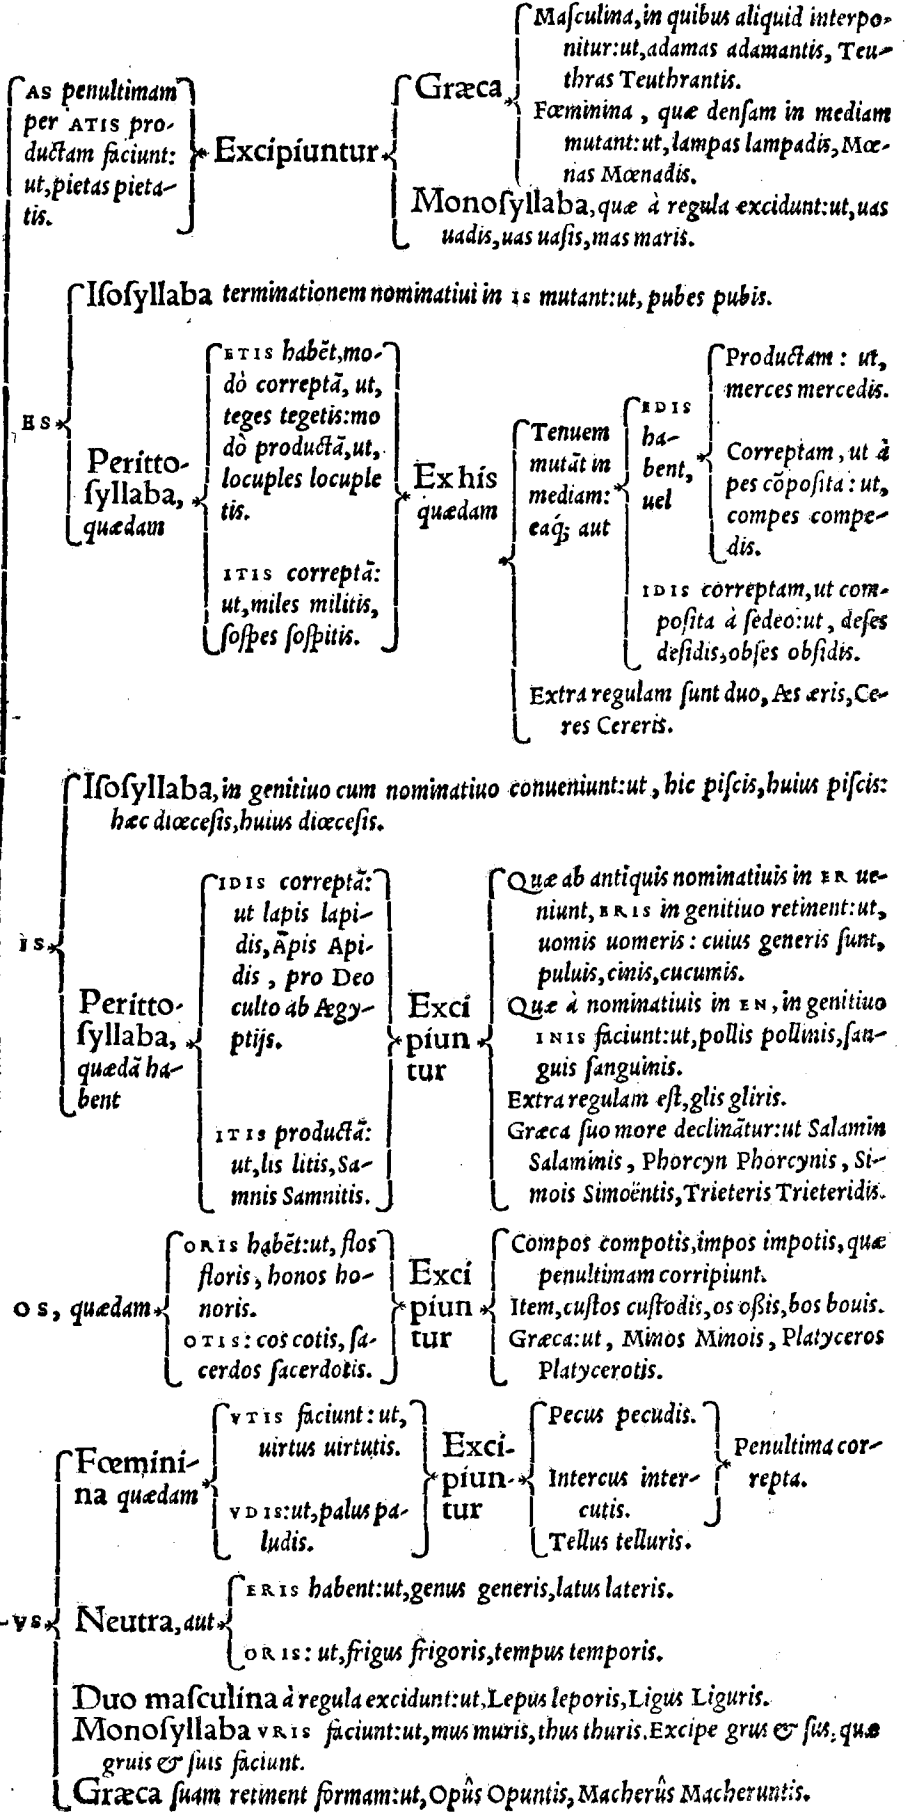 AS penultimam
per ATIS pro-
ductam faciunt:
ut, pietas pieta-
tis.
Excipiuntur
Græca,
Maſculina, in quibus aliquid interpo-
nitur: ut, adamas adamantis, Teu-
thras Teuthrantis.
Fœminina, quæ denſam in mediam
mutant: ut, lampas lampadis, Mœ-
nas Mœnadis.
Monoſyllaba, quæ à regula excidunt: ut, uas
uadis, uas uaſis, mas maris.
ES
Iſoſyllaba terminationem nominatiui in IS mutant: ut, pubes pubis.
Peritto-
ſyllaba,
quædam
ETIS habẽt, mo-
dò correptã, ut,
teges tegetis: mo
dò productã, ut,
locuples locuple
tis.
ITIS correptã:
ut, miles militis,
ſoſpes ſoſpitis.
Ex his
quædam
Tenuem
mutãt in
mediam:
eaq́; aut
EDIS
ha-
bent,
uel
Productam: ut,
merces mercedis.
Correptam, ut à
pes cõpoſita: ut,
compes compe-
dis.
IDIS correptam, ut com-
poſita à ſedeo: ut, deſes
deſidis, obſes obſidis.
Extra regulam ſunt duo, Aes æris, Ce-
res Cereris.
IS
Iſoſyllaba, in genitiuo cum nominatiuo conueniunt: ut, hic piſcis, huius piſcis:
hæc diœceſis, huius diœceſis.
Peritto-
ſyllaba,
quædã ha-
bent
IDIS correptã:
ut lapis lapi-
dis, Apis Api-
dis, pro Deo
culto ab Ægy-
ptijs.
ITIS productã:
ut, lis litis, Sa-
mnis Samnitis.
Exci
piun
tur
Quæ ab antiquis nominatiuis in ER ue-
niunt, ERIS in genitiuo retinent: ut,
uomis uomeris: cuius generis ſunt,
puluis, cinis, cucumis.
Quæ à nominatiuis in EN, in genitiuo
INIS faciunt: ut, pollis pollinis, ſan-
guis ſanguinis.
Extra regulam eſt, glis gliris.
Græca ſuo more declinãtur: ut Salamin
Salaminis, Phorcyn Phorcynis, Si-
mois Simoëntis, Trieteris Trieteridis.
OS, quædam
ORIS habẽt: ut, flos
floris, honos ho-
noris.
OTIS: cos cotis, ſa-
cerdos ſacerdotis.
Exci
piun
tur
Compos compotis, impos impotis, quæ
penultimam corripiunt.
Item, cuſtos cuſtodis, os oßis, bos bouis.
Græca: ut, Minos Minois, Platyceros
Platycerotis.
VS
Fœmini-
na quædam
VTIS faciunt: ut,
uirtus uirtutis.
VDIS: ut, palus pa-
ludis.
Exci-
piun-
tur
Pecus pecudis.
Intercus inter-
cutis.
Tellus telluris.
Penultima cor-
repta.
Neutra, aut
ERIS habent: ut, genus generis, latus lateris.
ORIS: ut, frigus frigoris, tempus temporis.
Duo maſculina à regula excidunt: ut, Lepus leporis, Ligus Liguris.
Monoſyllaba VRIS faciunt: ut, mus muris, thus thuris. Excipe grus & ſus, quæ
gruis & ſuis faciunt.
Græca ſuam retinent formam: ut, Opûs Opuntis, Macherûs Macheruntis.